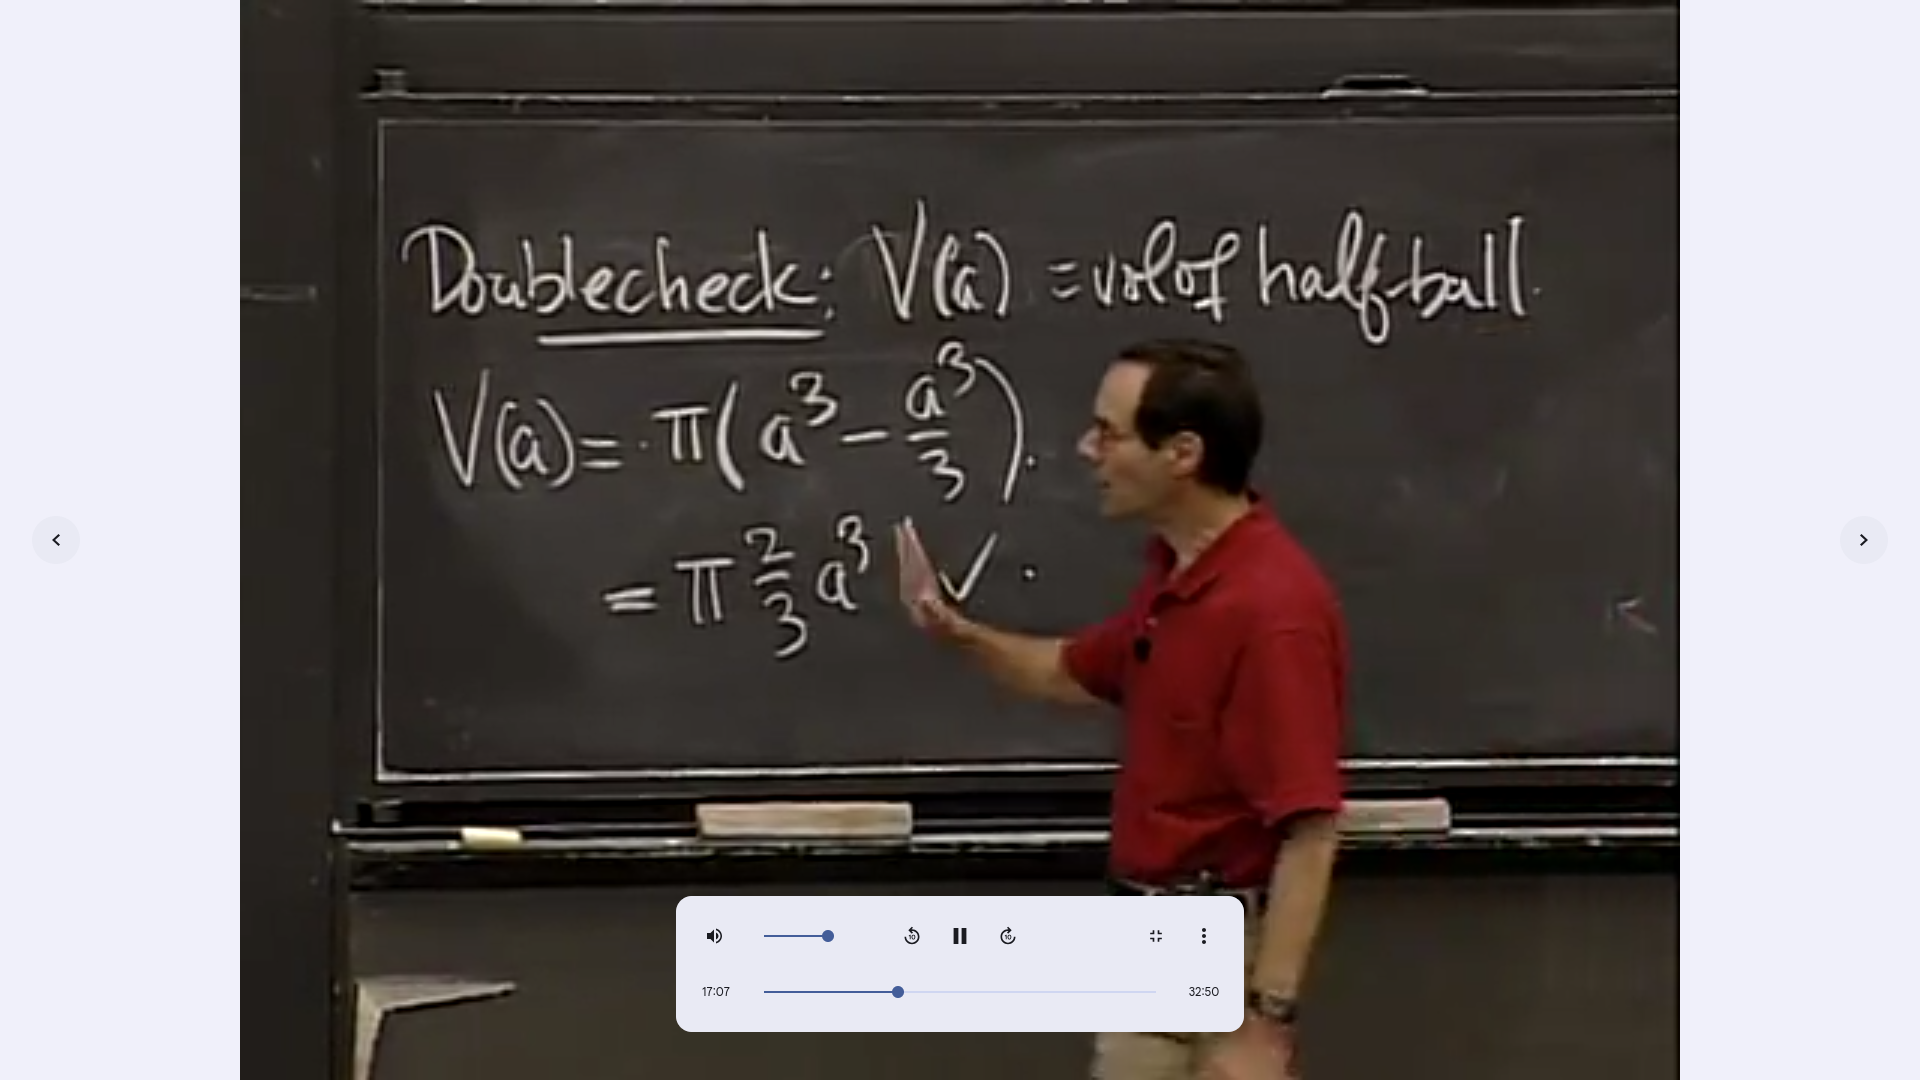 Doublecheck: V(a) = vol of half-ball.
V(a) = π(a³ - a³/3).
= π 2/3 a³ ✓.
10
10
17:07
32:50